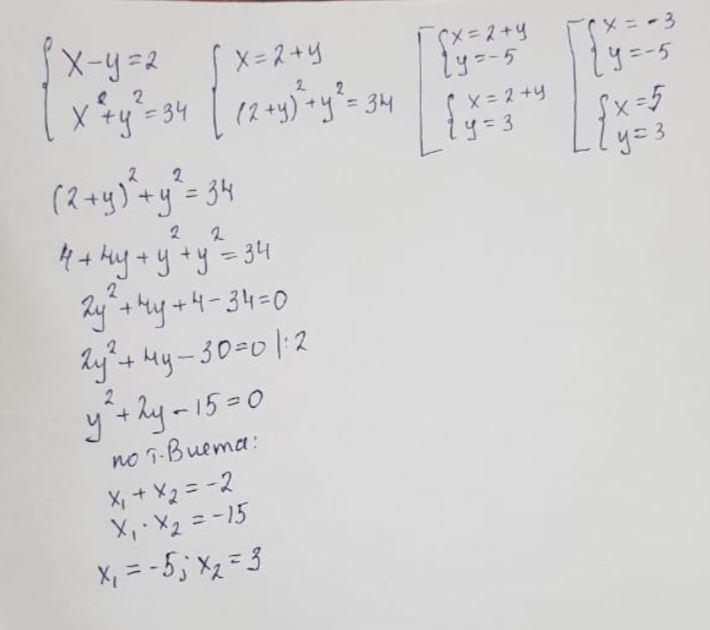 { x-y=2 { x=2+y [ { x=2+y [ { x=-3
x²+y²=34 (2+y)²+y²=34 y=-5 y=-5
{ x=2+y { x=5
y=3 y=3
(2+y)²+y²=34
4+4y+y²+y²=34
2y²+4y+4-34=0
2y²+4y-30=0 |:2
y²+2y-15=0
по т.Виета:
x₁+x₂=-2
x₁·x₂=-15
x₁=-5; x₂=3